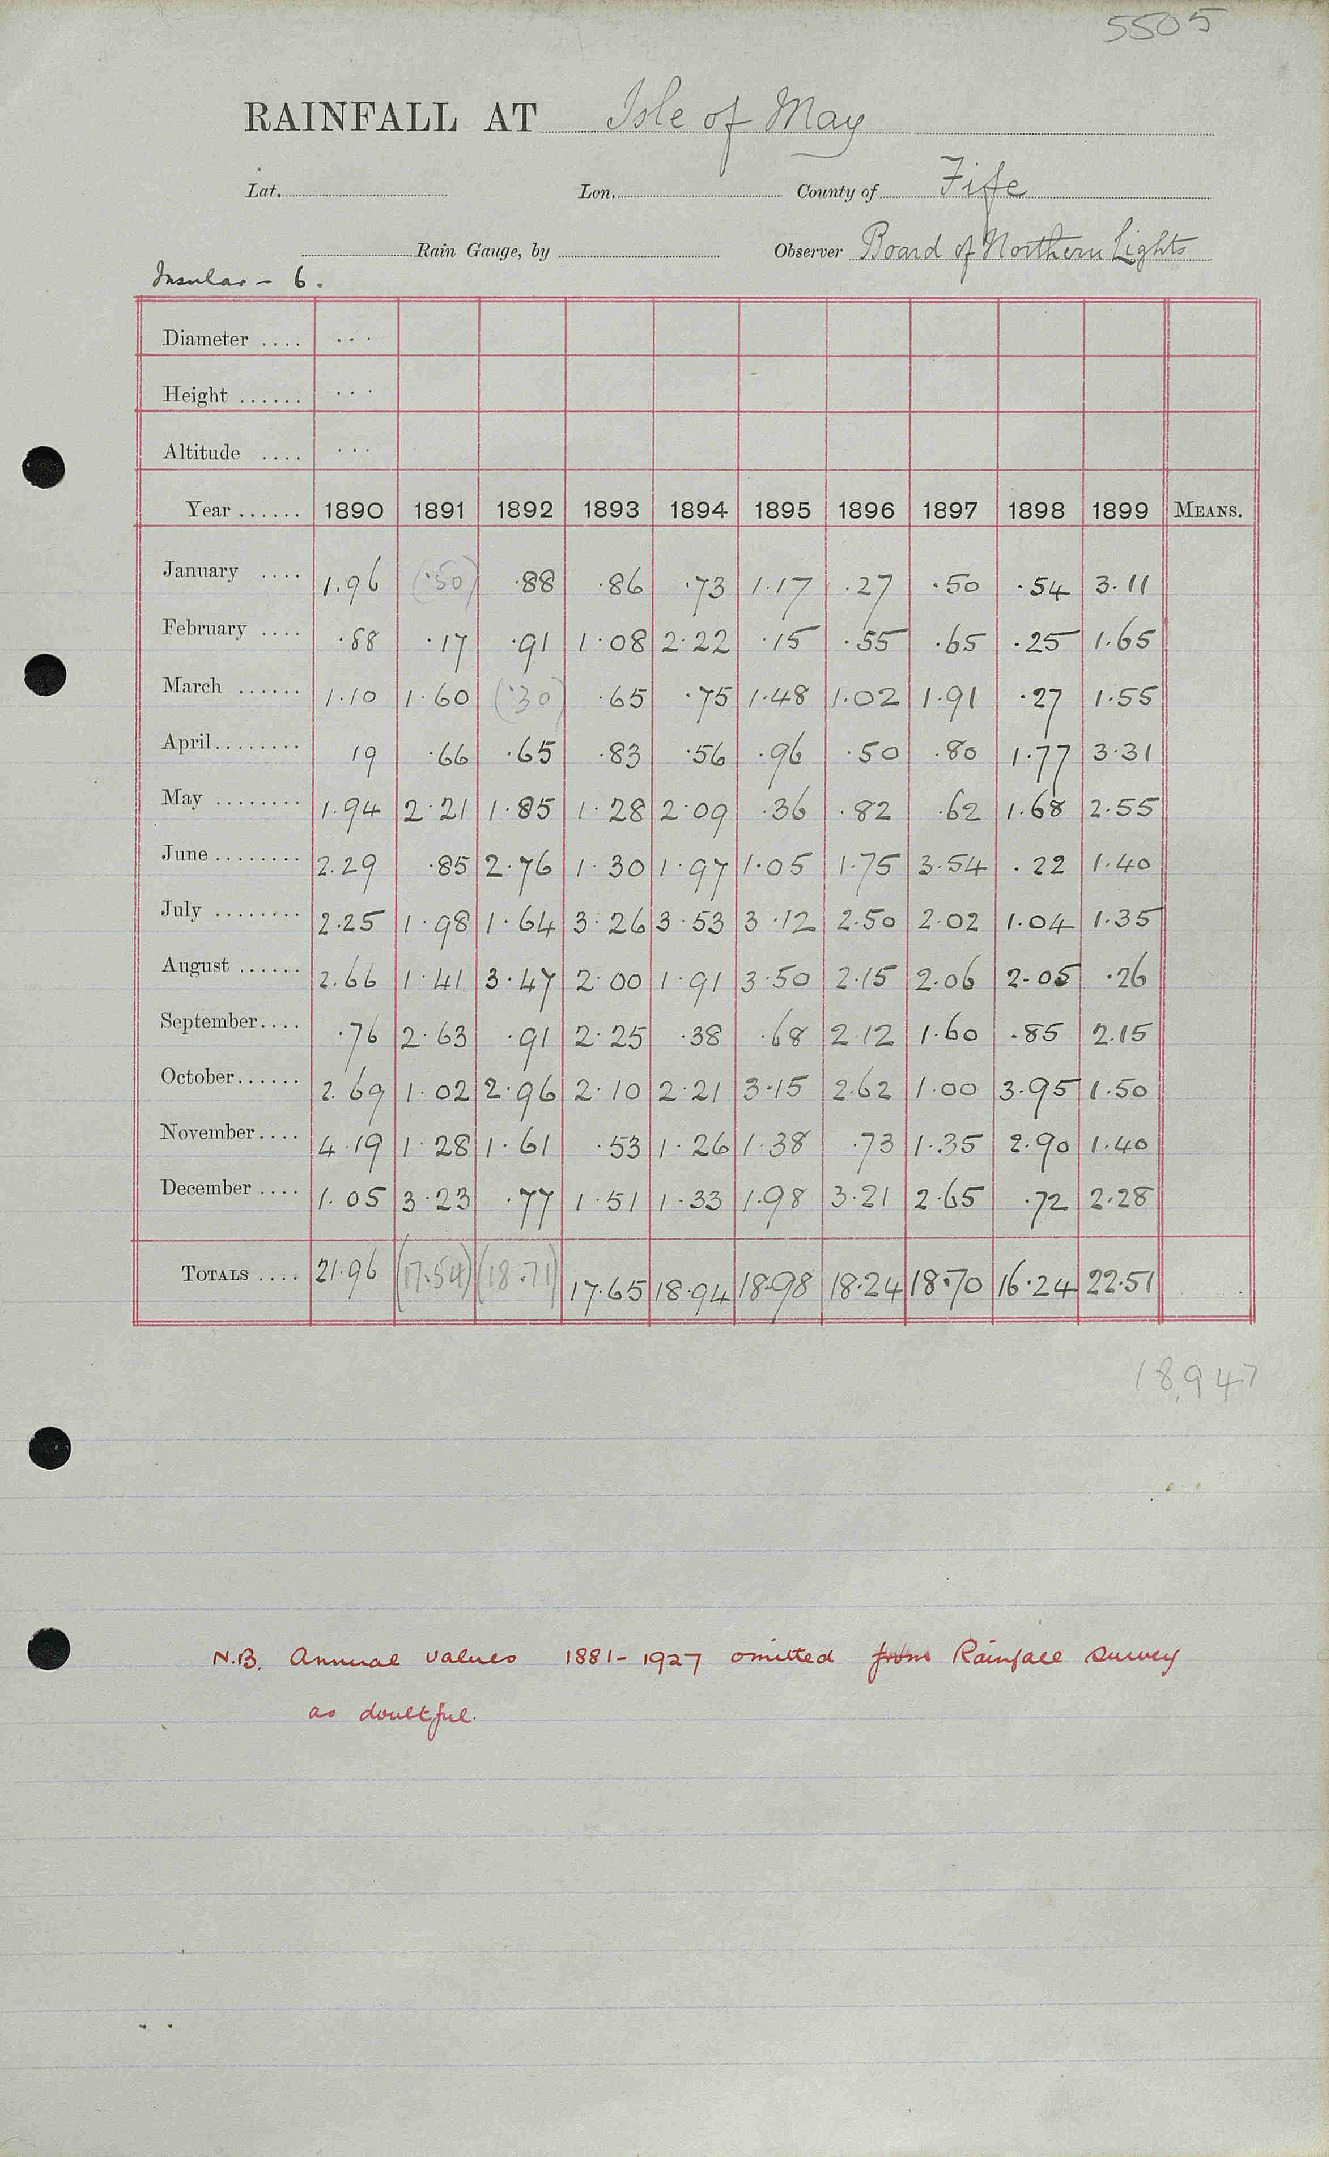 5505
RAINFALL AT Isle of May
Lat. Lon. County of Fife
Rain Gauge, by Observer Board of Northern Lights
Insular - 6.
Diameter .... ...
Height ...... ...
Altitude .... ...
Year ...... 1890 1891 1892 1893 1894 1895 1896 1897 1898 1899 MEANS.
January .... 1.96 (.50) .88 .86 .73 1.17 .27 .50 .54 3.11
February .... .88 .17 .91 1.08 2.22 .15 .55 .65 .25 1.65
March ...... 1.10 1.60 (.30) .65 .75 1.48 1.02 1.91 .27 1.55
April ........ 19 .66 .65 .83 .56 .96 .50 .80 1.77 3.31
May ........ 1.94 2.21 1.85 1.28 2.09 .36 .82 .62 1.68 2.55
June ........ 2.29 .85 2.76 1.30 1.97 1.05 1.75 3.54 .22 1.40
July ........ 2.25 1.98 1.64 3.26 3.53 3.12 2.50 2.02 1.04 1.35
August ...... 2.66 1.41 3.47 2.00 1.91 3.50 2.15 2.06 2.05 .26
September .... .76 2.63 .91 2.25 .38 .68 2.12 1.60 .85 2.15
October ...... 2.69 1.02 2.96 2.10 2.21 3.15 2.62 1.00 3.95 1.50
November .... 4.19 1.28 1.61 .53 1.26 1.38 .73 1.35 2.90 1.40
December .... 1.05 3.23 .77 1.51 1.33 1.98 3.21 2.65 .72 2.28
TOTALS .... 21.96 (17.54) (18.71) 17.65 18.94 18.98 18.24 18.70 16.24 22.51
18.947
N.B. Annual values 1881-1927 omitted from Rainfall Survey
as doubtful.